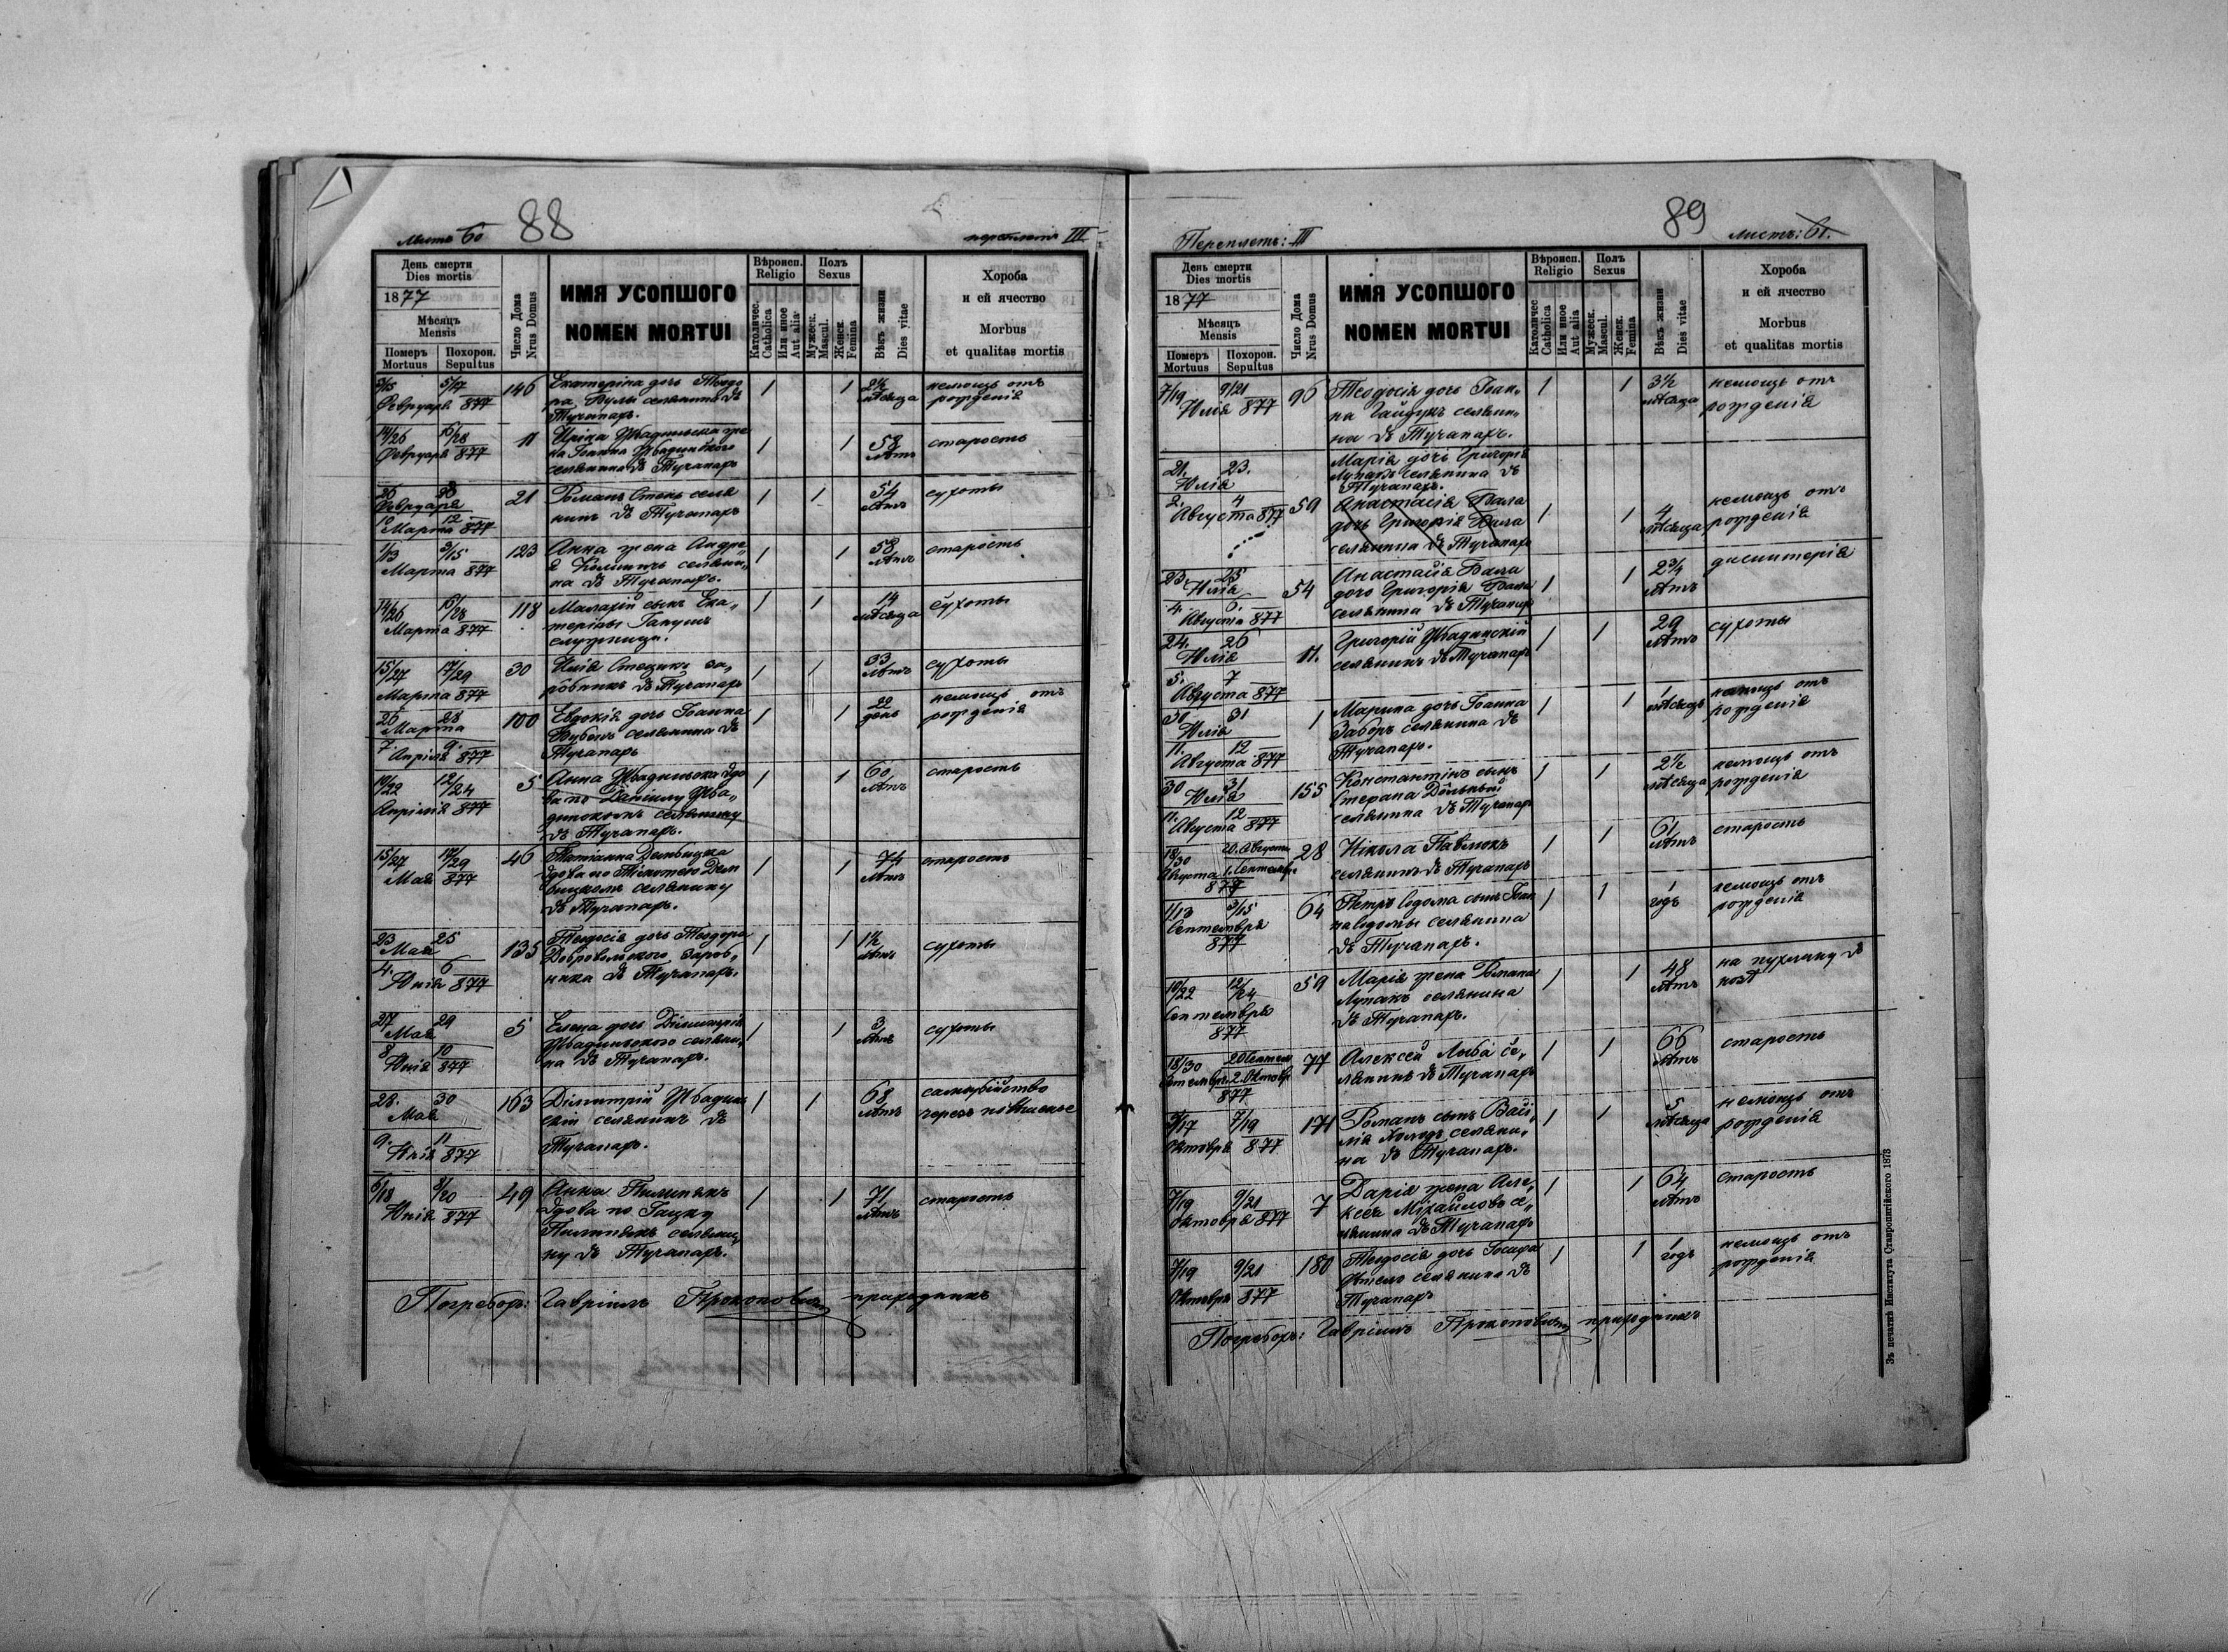 88
Листъ 60
переплетъ III
День смерти
Dies mortis
1877
Мѣсяцъ
Mensis
Померъ Похорон.
Mortuus Sepultus
Число Дома
Nrus Domus
ИМЯ УСОПШОГО
NOMEN MORTUI
Вѣроисп.
Religio
Католичес.
Catholica
Или иное
Aut alia
Полъ
Sexus
Мужеск.
Mascul.
Женск.
Femina
Вѣкъ жизни
Dies vitae
Хороба
и ей ячество
Morbus
et qualitas mortis
5/17
Февруарія 877
146
Екатеріна дочь Теодо
ра селянина въ
Тучапахъ.
1 1
2½
мѣсяца
немощь отъ
рожденія
14/26 16/28
Февруарія 877
11
селянина въ Тучапахъ
1 1
58
лѣтъ
старость
26 28
Февруарія
10 12
Марта 877
21
Романъ селя
нинъ въ Тучапахъ
1 1
54
лѣтъ
сухоты
1/13 3/15
Марта 877
123
Анна жена Андре„
я селяни„
на въ Тучапахъ.
1 1
58
лѣтъ
старость
14/26 16/28
Марта 877
118
Малахій сынъ Ека„
теріны
1 1
14
мѣсяца
сухоты
15/27 17/29
Марта 877
30
Илія за„
робникъ въ Тучапахъ
1 1
33
лѣтъ
сухоты
26 28
Марта
7. 9.
Апріля 877
100
Евдокія дочь Іоанна
селянина въ
Тучапахъ
1 1
22
день
немощь отъ
рожденія
10/22 12/24
Апріля 877
5
Анна вдо
ва по Даніилу
селянину
въ Тучапахъ.
1 1
60
лѣтъ
старость
15/27 17/29
Мая 877
46
Татіанна
вдова по
селянину
въ Тучапахъ.
1 1
74
лѣтъ
старость
23 25
Мая
4. 6
Юнія 877
135
Теодосія дочь Теодора
Добровольского зароб„
ника въ Тучапахъ.
1 1
1½
лѣтъ
сухоты
27 29
Мая
8 10
Юнія 877
5
Елена дочь Димитрія
селяни„
на въ Тучапахъ.
1 1
3
лѣтъ
сухоты
28. 30
Мая
9. 11
Юнія 877
163
Димитрій
селянинъ въ
Тучапахъ.
1 1
68
лѣтъ
самоубійство
черезъ повѣшенье
6/18 8/20
Юнія 877
49
Анна Пилипякъ
вдова по Гацку
Пилипякъ селяни„
ну въ Тучапахъ.
1 1
71
лѣтъ
старость
Погребохъ: Гавріилъ Прокоповичъ приходникъ
89
Переплетъ: III
листъ: 61.
День смерти
Dies mortis
1877
Мѣсяцъ
Mensis
Померъ Похорон.
Mortuus Sepultus
Число Дома
Nrus Domus
ИМЯ УСОПШОГО
NOMEN MORTUI
Вѣроисп.
Religio
Католичес
Catholica
Или иное
Aut alia
Полъ
Sexus
Мужеск.
Mascul.
Женск.
Femina
Вѣкъ жизни
Dies vitae
Хороба
и ей ячество
Morbus
et qualitas mortis
7/19 9/21
Юлія 877
96
Теодосія дочь Іоан„
на Гайдукъ селяни„
на въ Тучапахъ.
1 1
3½
мѣсяца
немощь отъ
рожденія
21. 23.
Юлія
2. 4
Августа 877
59
Марія дочь Григорія
Лупакъ селянина въ
Тучапахъ.
Анастасія Бала
дочь Григорія Бала
селянина въ Тучапахъ
1 1
4
мѣсяца
немощь отъ
рожденія
23. 25
Юлія
4. 6.
Августа 877
54
Анастасія Бала
дочь Григорія Бала
селянина въ Тучапахъ
1 1
2¾
лѣтъ
дисинтерія
24. 26
Юлія
5. 7
Августа 877
11.
Григорій
селянинъ въ Тучапахъ
1 1
29
лѣтъ
сухоты
30 31
Юлія
11. 12
Августа 877
1
Марина дочь Іоанна
Заборъ селянина въ
Тучапахъ.
1 1
1
мѣсяцъ
немощь отъ
рожденія
30 31
Юлія
11. 12
Августа 877
155
Константінъ сынъ
Стефана
селянина въ Тучапахъ
1 1
2½
мѣсяца
немощь отъ
рожденія
18/30 20. Августа
Августа 1. Септемвр.
877
28
Нікола Павлюкъ
селянинъ въ Тучапахъ
1 1
61
лѣтъ
старость
1/13 3/15
Септемврія
877
64
Петръ Содома сынъ Іоан
на Содомы селянина
въ Тучапахъ.
1 1
1
годъ
немощь отъ
рожденія
10/22 12/24
Септемврія
877
59
Марія жена Романа
Лупакъ селянина
въ Тучапахъ.
1 1
48
лѣтъ
на пухлину въ
нозѣ
18/30 20 Септем
Септемвр. 2. Октовр
877
77
Алексей Лыба се„
лянинъ въ Тучапахъ
1 1
66
лѣтъ
старость
5/17 7/19
Октоврія 877
171
Романъ сынъ Васі„
лія селяни„
на въ Тучапахъ.
1 1
5
мѣсяца
немощь отъ
рожденія
7/19 9/21
Октоврія 877
7
Дарія жена Але„
ксея Міхайловъ се„
лянина въ Тучапахъ
1 1
64
лѣтъ
старость
7/19 9/21
Октоврія 877
180
Теодосія дочь Іосифа
селянина въ
Тучапахъ
1 1
1
годъ
немощь отъ
рожденія
Погребохъ: Гавріилъ Прокоповичъ приходникъ
Зъ печатнѣ Института Ставропигійского 1873